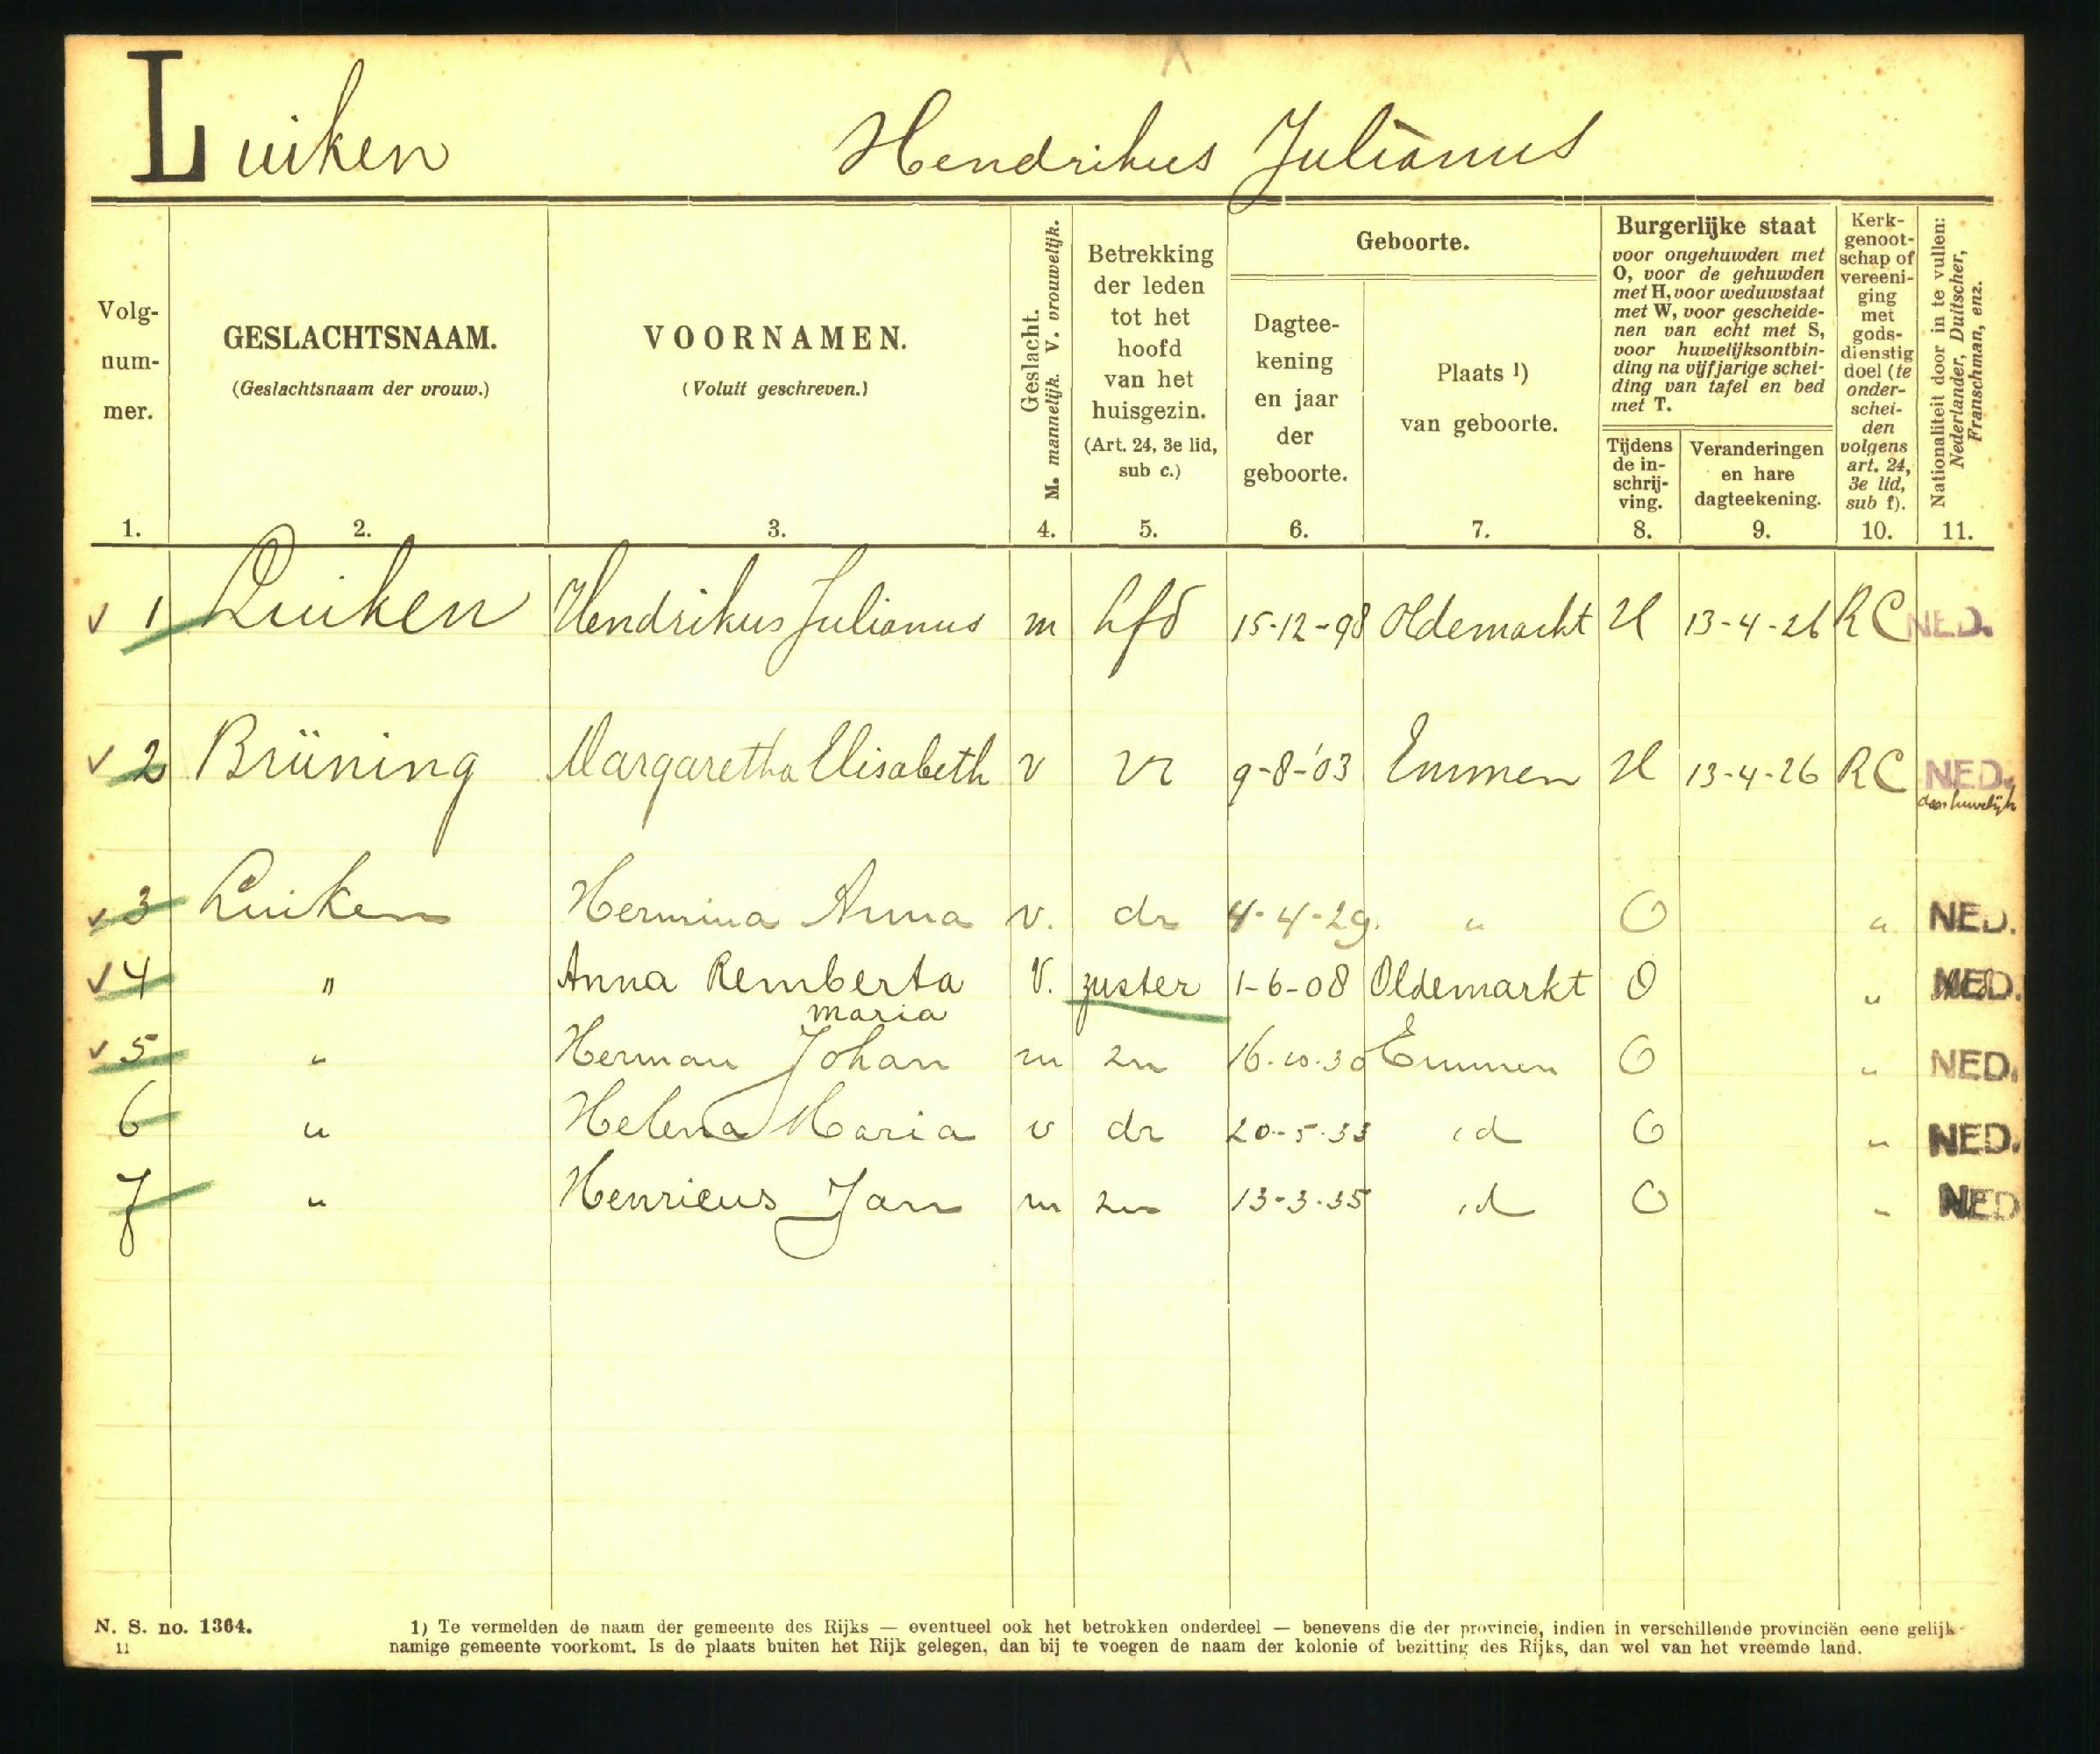 Luiken Hendrikus Julianus
Volg-
num-
mer.
1.
GESLACHTSNAAM.
(Geslachtsnaam der vrouw.)
2.
VOORNAMEN.
(Voluit geschreven.)
3.
Geslacht.
M. mannelijk. V. vrouwelijk.
4.
Betrekking
der leden
tot het
hoofd
van het
huisgezin.
(Art. 24, 3e lid,
sub c.)
5.
Geboorte.
Dagtee-
kening
en jaar
der
geboorte.
6.
Plaats 1)
van geboorte.
7.
Burgerlijke staat
voor ongehuwden met
O, voor de gehuwden
met H, voor weduwstaat
met W, voor gescheide-
nen van echt met S,
voor huwelijksontbin-
ding na vijfjarige schei-
ding van tafel en bed
met T.
Tijdens
de in-
schrij-
ving.
8.
Veranderingen
en hare
dagteekening.
9.
Kerk-
genoot-
schap of
vereeni-
ging
met
gods-
dienstig
doel (te
onder-
schei-
den
volgens
art. 24,
3e lid,
sub f).
10.
Nationaliteit door in te vullen:
Nederlander, Duitscher,
Franschman, enz.
11.
v 1 Luiken Hendrikus Julianus m hfd 15-12-98 Oldemarkt H 13-4-26 RC NED.
v 2 Brüning Margaretha Elisabeth v vr 9-8-'03 Emmen H 13-4-26 RC NED.
door huwelijk
v 3 Luiken Hermina Anna v. dr 4-4-29. " O " NED.
v 4 " Anna Remberta V. zuster 1-6-08 Oldemarkt O " NED.
maria
v 5 " Herman Johan m zn 16-10-30 Emmen O " NED.
6 " Helena Maria v dr 20-5-33 id O " NED.
7 " Henricus Jan m zn 13-3-35 id O " NED
N. S. no. 1364.
11
1) Te vermelden de naam der gemeente des Rijks — eventueel ook het betrokken onderdeel — benevens die der provincie, indien in verschillende provinciën eene gelijk-
namige gemeente voorkomt. Is de plaats buiten het Rijk gelegen, dan bij te voegen de naam der kolonie of bezitting des Rijks, dan wel van het vreemde land.